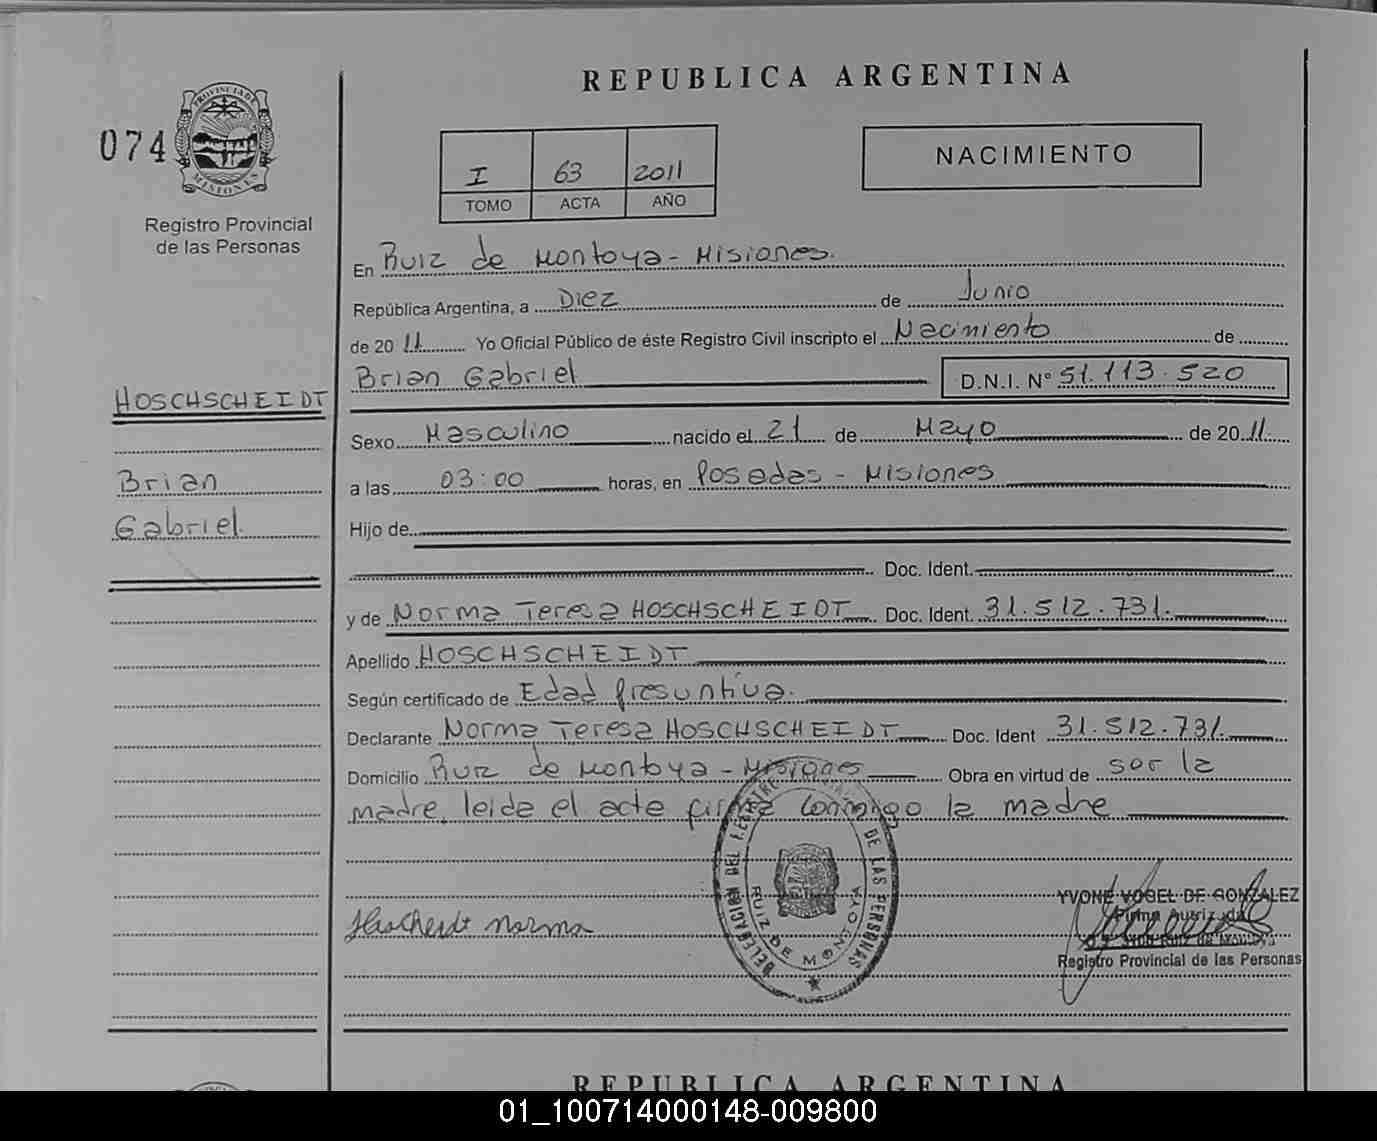 REPUBLICA ARGENTINA
074
PROVINCIA DE
MISIONES
Registro Provincial
de las Personas
I 63 2011
TOMO ACTA AÑO
NACIMIENTO
En Ruiz de Montoya - Misiones.
República Argentina, a Diez de Junio
de 2011 Yo Oficial Público de éste Registro Civil inscripto el Nacimiento de
Brian Gabriel D.N.I. N° 51.113.520
HOSCHSCHEIDT
Brian
Gabriel.
Sexo Masculino nacido el 21 de Mayo de 2011
a las 03:00 horas, en Posadas - Misiones
Hijo de
Doc. Ident.
y de Norma Teresa HOSCHSCHEIDT Doc. Ident. 31.512.731.
Apellido HOSCHSCHEIDT
Según certificado de Edad presuntiva.
Declarante Norma Teresa HOSCHSCHEIDT Doc. Ident 31.512.731.
Domicilio Ruiz de Montoya - Misiones Obra en virtud de ser la
madre, leida el acte firma conmigo la madre
DELEGACION DEL REGISTRO DE LAS PERSONAS
RUIZ DE MONTOYA
Norma
YVONE VOGEL DE GONZALEZ
Registro Provincial de las Personas
REPUBLICA ARGENTINA
01_100714000148-009800